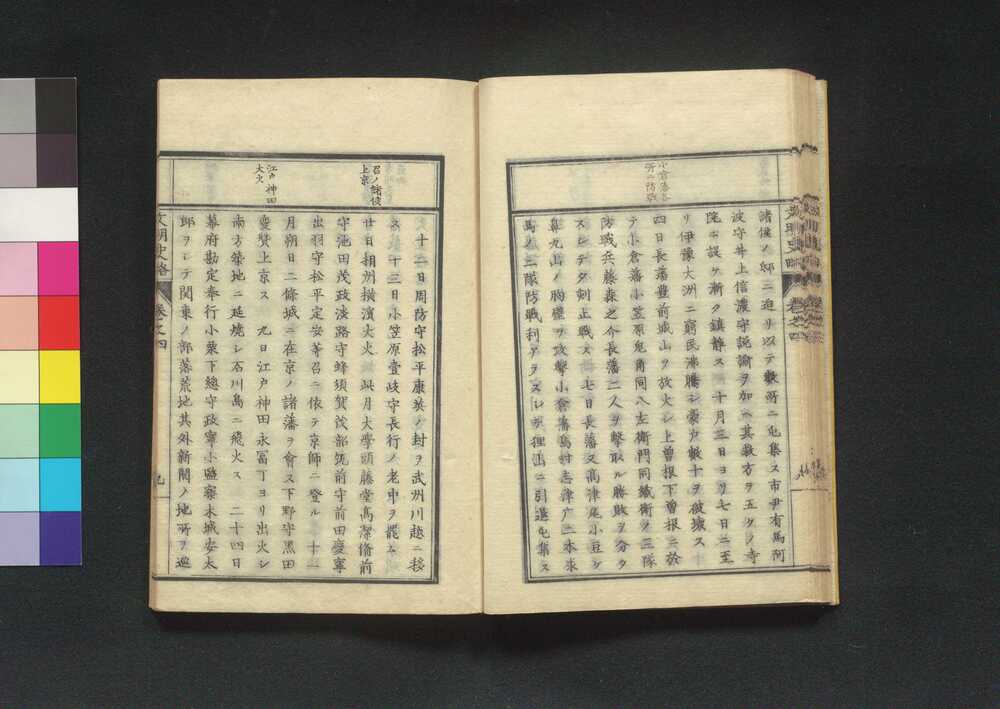 小倉藩各
所ニ防戦
諸侯ノ邸ニ迫リ以テ数所ニ屯集ス市尹有馬阿
波守井上信濃守説諭ヲ加ヘ其救方ヲ五夕ノ寺
院ニ設ケ漸ク鎮静ス 十月三日ヨリ七日ニ至
リ伊豫大洲ニ窮民沸騰シ豪戸数十ヲ破壊ス 十
四日長藩豊前城山ヲ放火シ上曽根下曽根ニ於
テ小倉藩小笠原鬼角同八左衛門同織衛ヲ三隊
防戦兵藤森之介長藩二人ヲ撃取ル勝敗ヲ分タ
スシテ夕刻止戦ス 七日長藩又高津尾小豆ケ
鼻九山ノ胸壁ヲ攻撃小倉藩島村志津广二本求
馬ノ三隊防戦利アラスシテ狸山ニ引退屯集ス
文明史略 巻之四
召ノ諸侯
上京
江戸神田
大火
十二日周防守松平康英ノ封ヲ武州川越ニ移
ス 十三日小笠原壹岐守長行ノ老中ヲ罷ム
廿日相州横濱大火 此月大學頭藤堂高潔備前
守池田茂政淡路守蜂須賀茂韶筑前守前田慶寧
出羽守松平定安等召ニ依テ京師ニ登ル 十二
月朔日二條城ニ在京ノ諸藩ヲ會ス下野守黒田
慶賛上京ス 九日江戸神田永冨丁ヨリ出火シ
南方築地ニ延焼シ石川島ニ飛火ス 二十四日
幕府勘定奉行小栗下總守政寧小監察木城安太
郎ヲシテ関東ノ部落荒地其外新開ノ地所ヲ巡
文明史略 巻之四 九